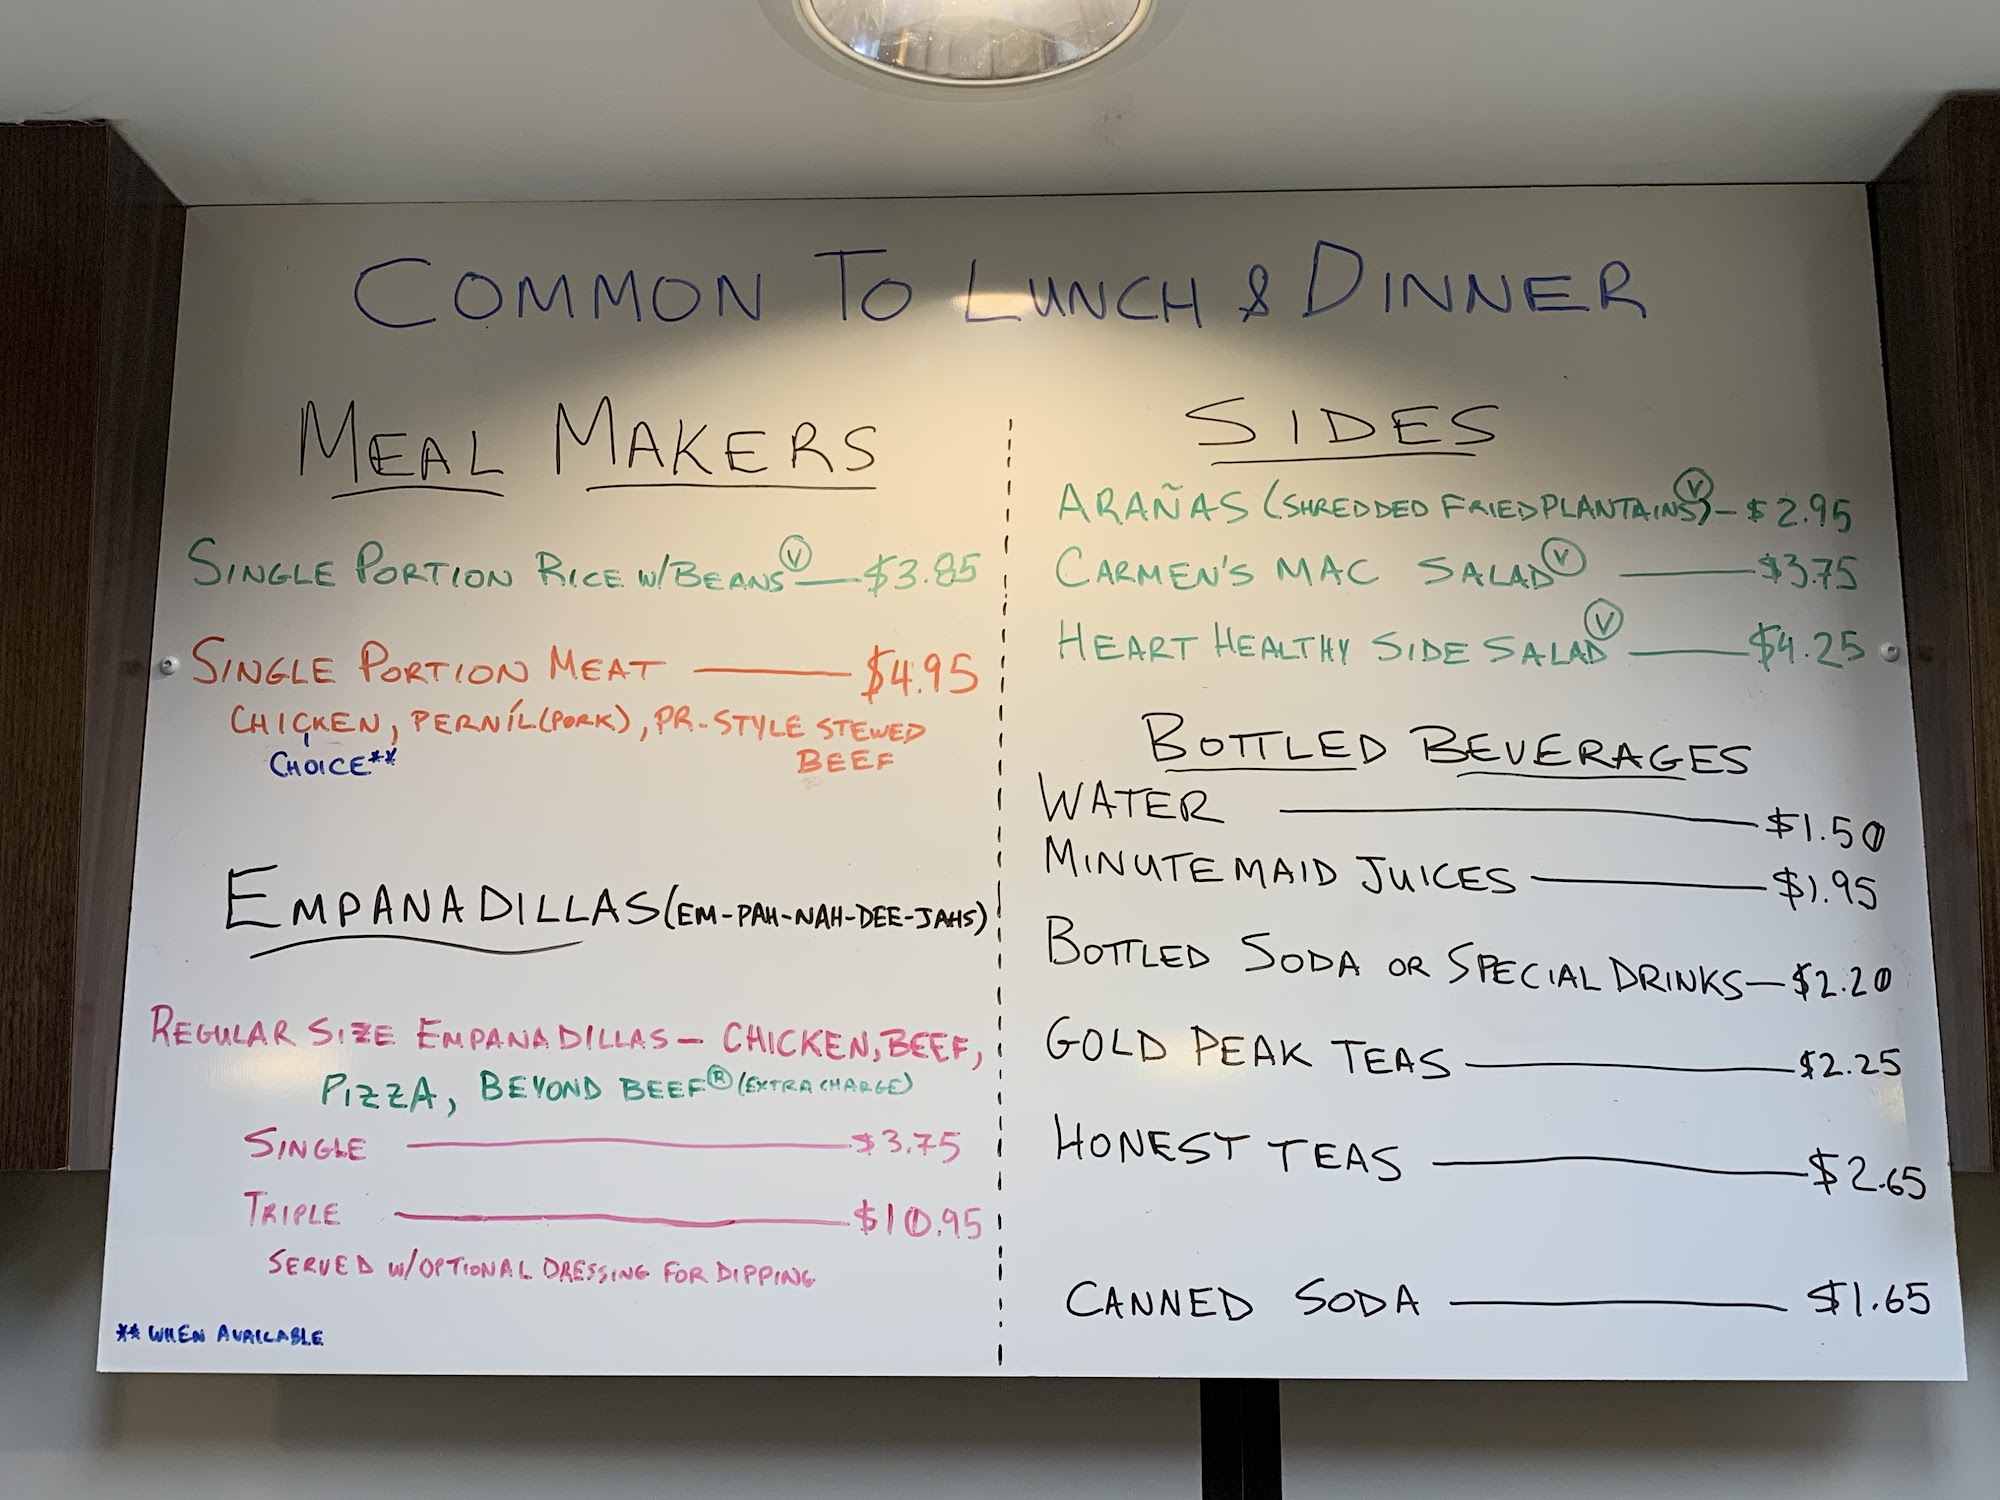 COMMON TO LUNCH & DINNER
MEAL MAKERS
SINGLE PORTION RICE W/BEANS Ⓥ — $3.85
SINGLE PORTION MEAT — $4.95
CHICKEN, PERNÍL (PORK), PR-STYLE STEWED
CHOICE** BEEF
EMPANADILLAS (EM-PAH-NAH-DEE-JAHS)
REGULAR SIZE EMPANADILLAS — CHICKEN, BEEF,
PIZZA, BEYOND BEEF® (EXTRA CHARGE)
SINGLE — $3.75
TRIPLE — $10.95
SERVED W/OPTIONAL DRESSING FOR DIPPING
** WHEN AVAILABLE
SIDES
ARAÑAS (SHREDDED FRIED PLANTAINS) Ⓥ — $2.95
CARMEN'S MAC SALAD Ⓥ — $3.75
HEART HEALTHY SIDE SALAD Ⓥ — $4.25
BOTTLED BEVERAGES
WATER — $1.50
MINUTE MAID JUICES — $1.95
BOTTLED SODA OR SPECIAL DRINKS — $2.20
GOLD PEAK TEAS — $2.25
HONEST TEAS — $2.65
CANNED SODA — $1.65